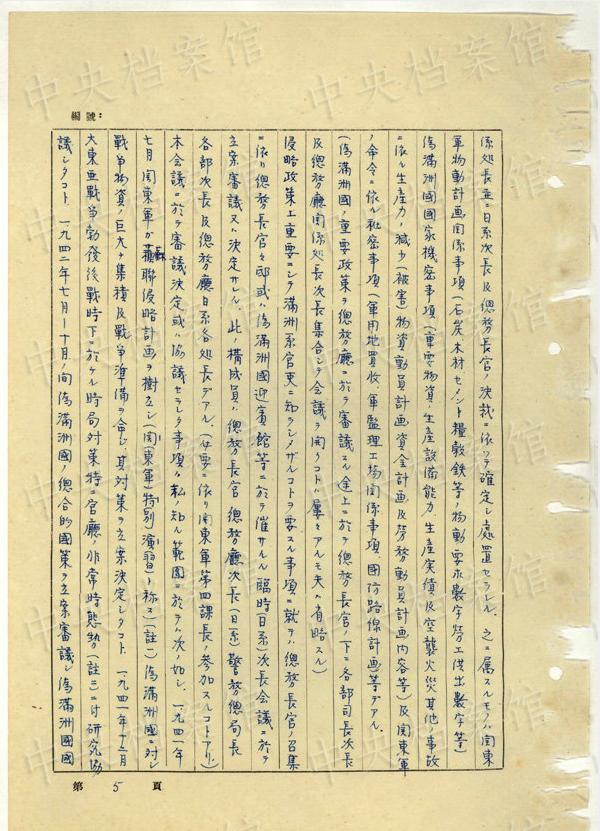 編號：
係処長並ニ日系次長及總務長官ノ決裁ニ依ッテ確定シ処置セラレル．之ニ属スルモノハ関東
軍物動計画関係事項(石炭木材セメント糧穀鉄等ノ物動要求数字労工供出数字等)
偽満洲国國家機密事項(重要物資ノ生産設備能力．生産実績及空襲火災其他ノ事故
ニ依ル生産力ノ減少(被害)物資動員計画資金計画及労務動員計画内容等)及関東軍
ノ命令ニ依ル秘密事項(軍用地買收．軍監理工場関係事項．國防路線計画)等デアル．
(偽満洲國ノ重要政策ヲ總務廳ニ於テ審議スル途上ニ於テ總務長官ノ下ニ各部司長次長
及總務廳関係処長次長集合シテ会議ヲ開クコトハ屢々アルモ夫ハ省略スル)
侵略政策上重要ニシテ満洲系官吏ニ知ラシメザルコトヲ要スル事項ニ就テハ總務長官ノ召集
ニ依リ總務長官々邸或ハ偽満洲國迎賓館等ニ於テ催サルル臨時(日系)次長会議ニ於テ
立案審議又ハ決定サレル．此ノ構成員ハ總務長官總務廳次長(日系)警務總局長
各部次長及總務廳日系各処長デアル．(必要ニ依リ関東軍第四課長ノ参加スルコトアリ)
本会議ニ於テ審議決定或ハ協議セラレタ事項ハ私ノ知ル範囲ニ於テハ次ノ如シ．一九四一年
七月関東軍ガ蘇聯侵略計画ヲ樹立シ(関東軍「特別」演習ト称ス)(註二)偽満洲國ニ対シ
戦争物資ノ巨大ナ集積及戦争準備ヲ命ジ其対策ヲ立案決定シタコト．一九四一年十二月
大東亜戦争勃発後戦時下ニ於ケル時局対策特ニ官廳ノ非常時態勢(註三)ニ付研究協
議シタコト．一九四二年七月ー十月ノ間偽満洲國ノ總合的國策ヲ立案審議シ偽満洲國國
第5頁
中央档案馆